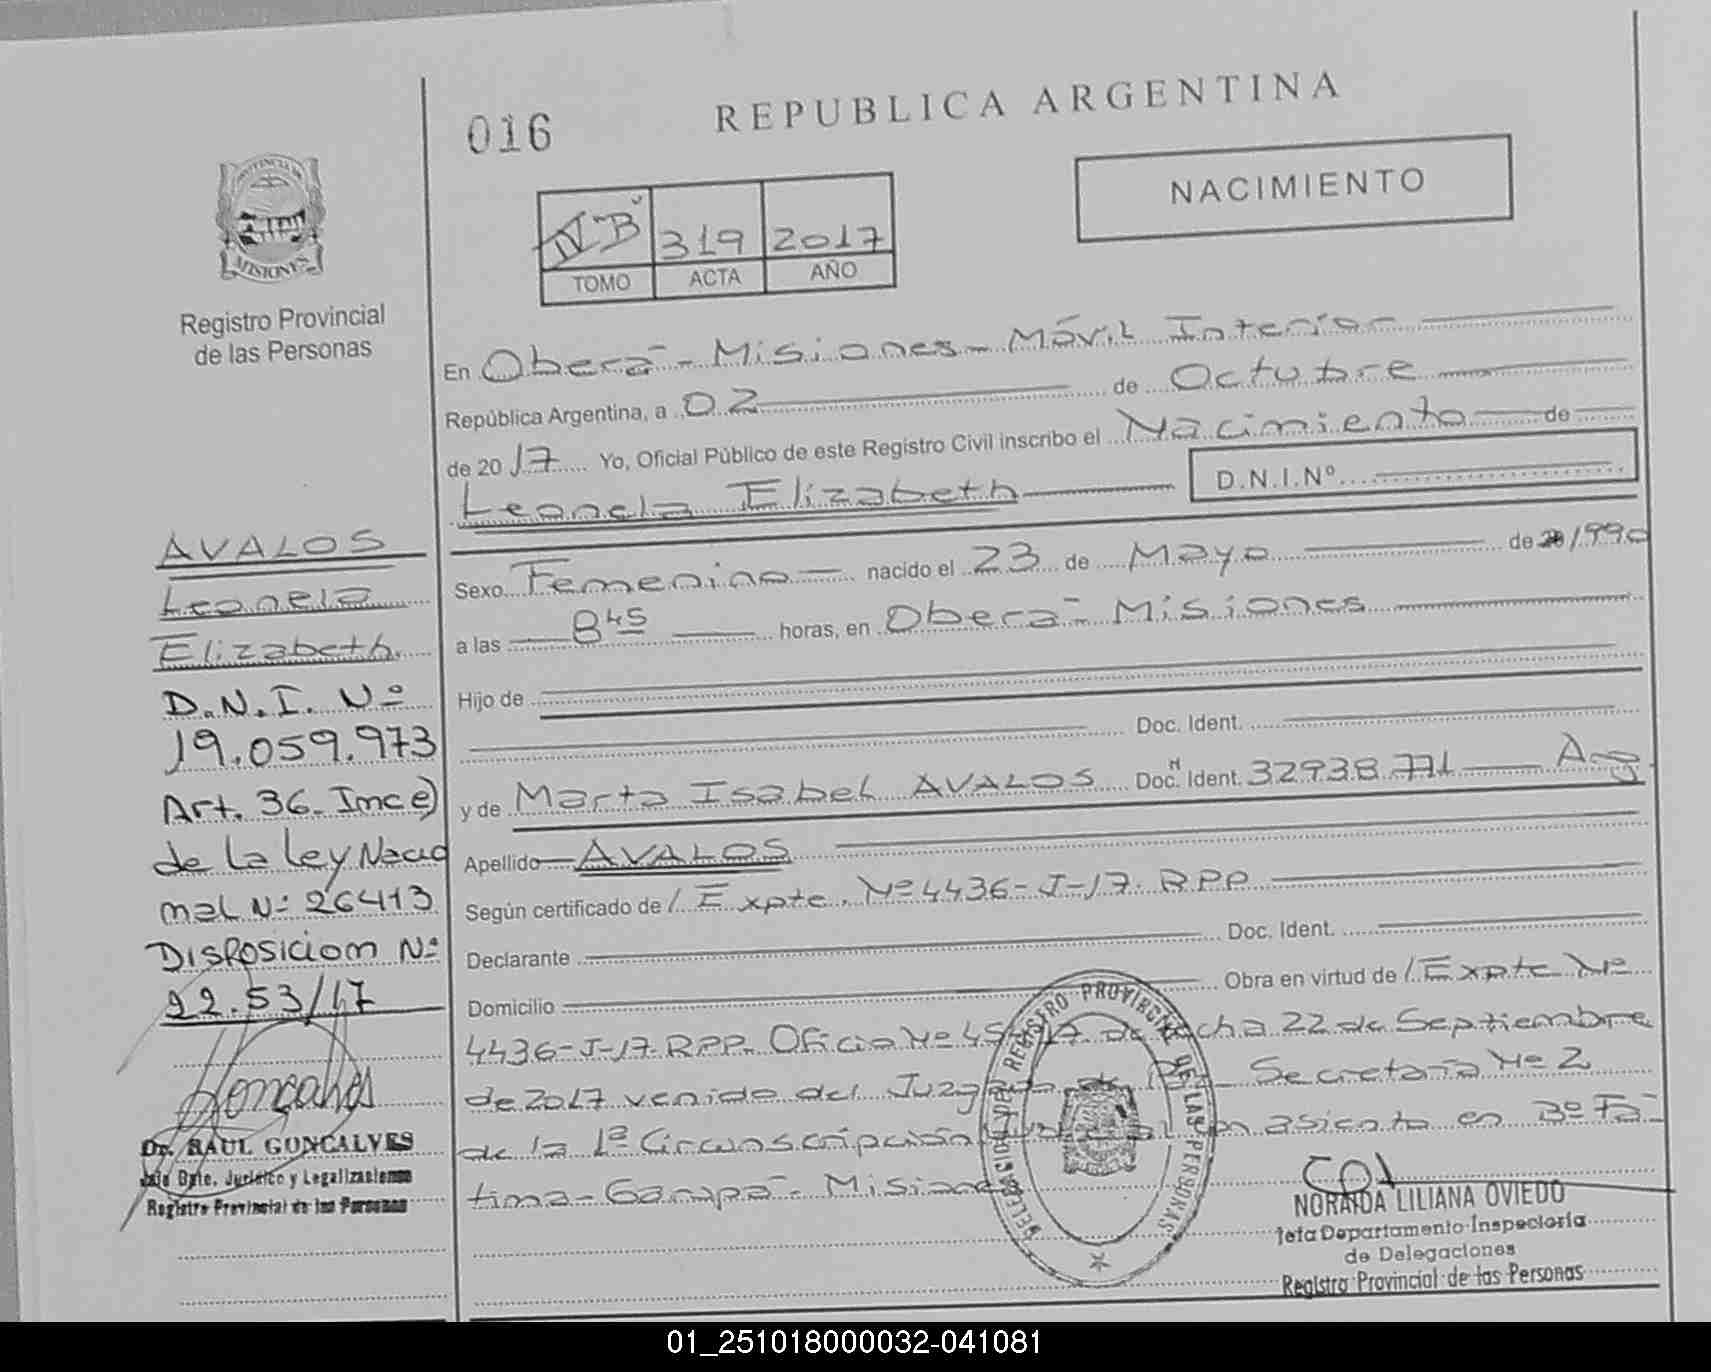 016
REPUBLICA ARGENTINA
NACIMIENTO
PROVINCIA DE
MISIONES
Registro Provincial
de las Personas
"B" 319 2017
TOMO ACTA AÑO
En Oberá - Misiones - Móvil Interior
República Argentina, a 02 de Octubre
de 2017 Yo, Oficial Público de este Registro Civil inscribo el Nacimiento de
Leonela Elizabeth D.N.I.Nº
Sexo Femenino nacido el 23 de Mayo de 1990
a las 8 45 horas, en Oberá - Misiones
Hijo de
Doc. Ident.
y de Marta Isabel AVALOS Doc. Ident. 32938.771 Arg
Apellido AVALOS
Según certificado de / Expte. Nº 4436-J-17. RPP
Declarante Doc. Ident.
Domicilio Obra en virtud de / Expte Nº
4436-J-17. RPP. Oficio Nº de fecha 22 de Septiembre
de 2017 venido del Juzgado Secretaría Nº 2
de la 1ª Circunscripción asiento en Bº Fá-
tima - Garupá - Misiones
AVALOS
Leonela
Elizabeth.
D.N.I. Nº
19.059.973
Art. 36. Inc e)
de la Ley Nacio
nal Nº 26413
Disposicion Nº
22.53/17
Dr. RAUL GONCALVES
Jefe Dpto. Jurídico y Legalizaciones
Registro Provincial de las Personas
DELEGACION REGISTRO PROVINCIAL DE LAS PERSONAS
NORAIDA LILIANA OVIEDO
Jefa Departamento Inspectoría
de Delegaciones
Registro Provincial de las Personas
01_251018000032-041081